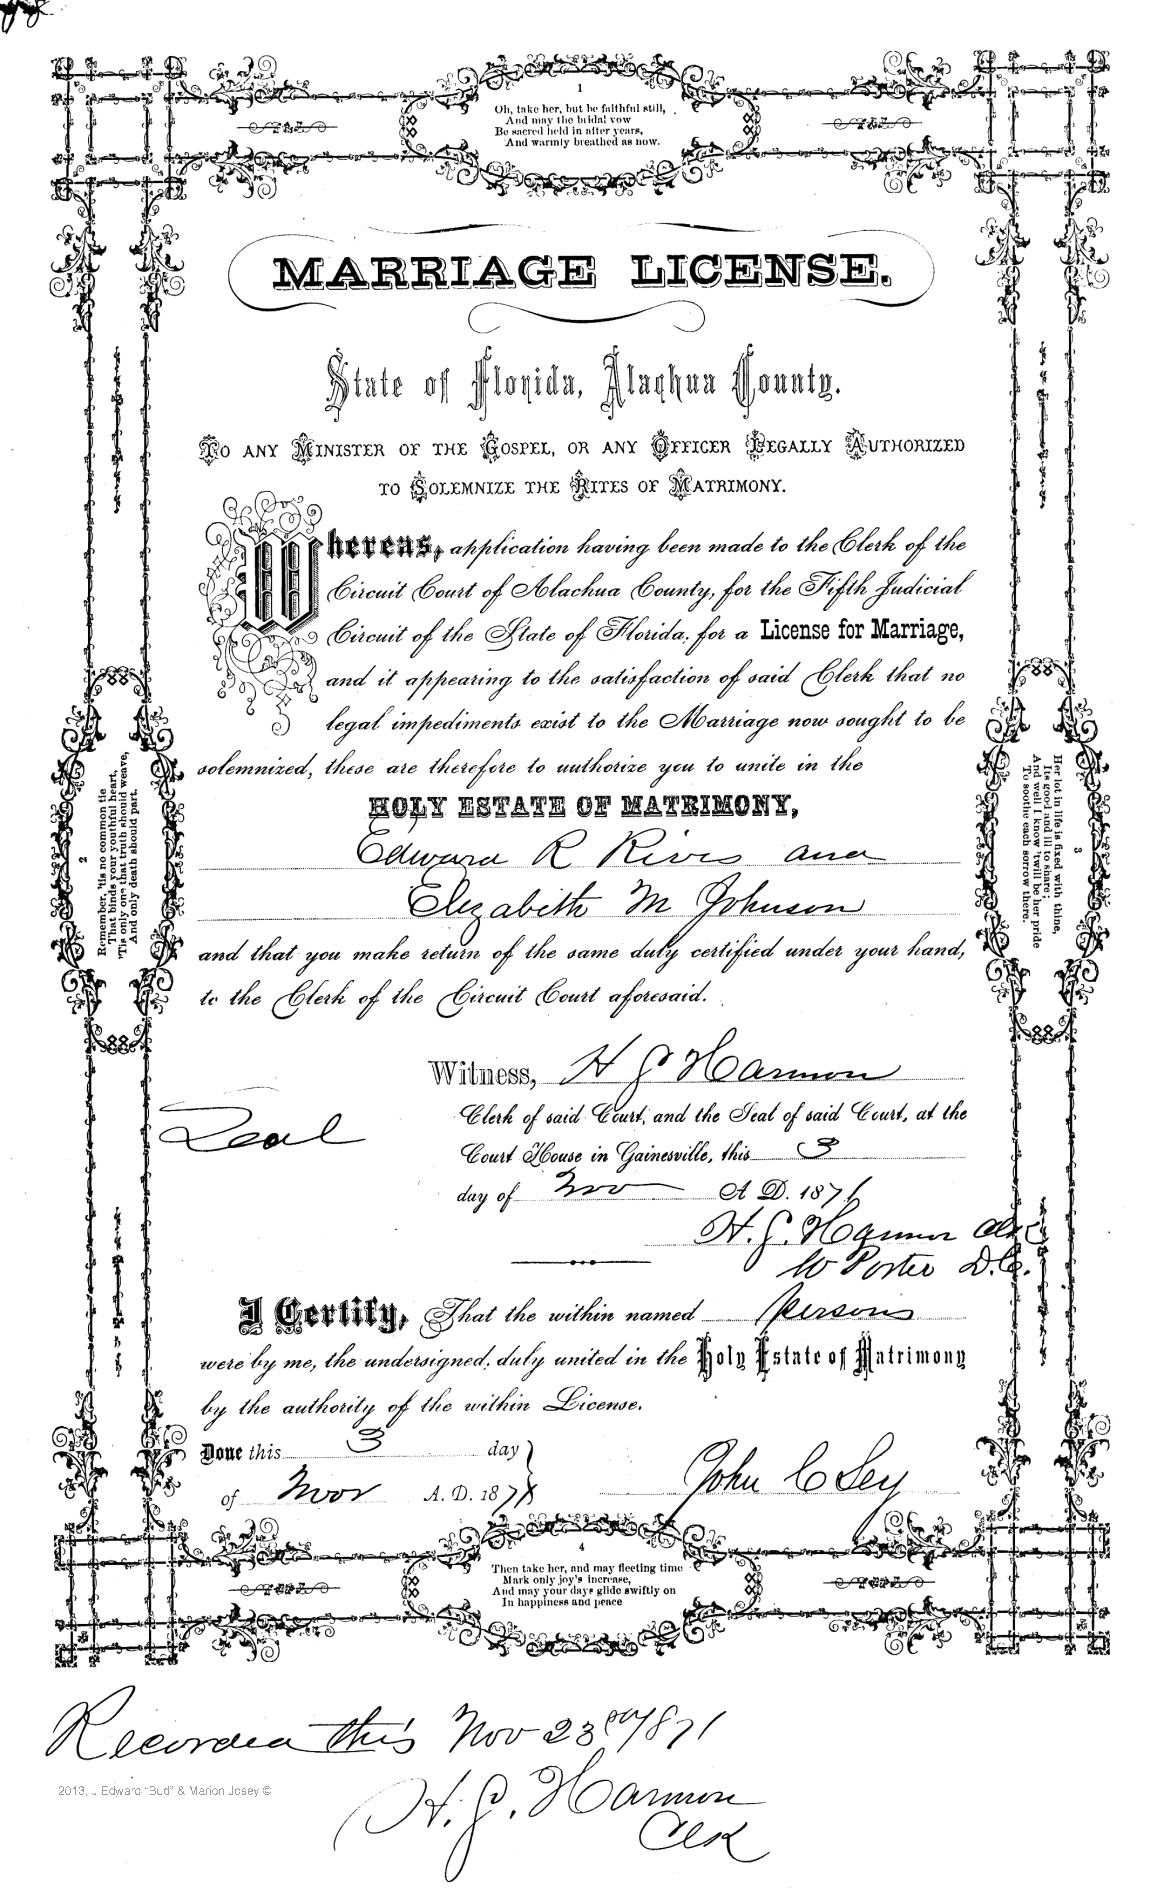 1
Oh, take her, but be faithful still,
And may the bridal vow
Be sacred held in after years,
And warmly breathed as now.
MARRIAGE LICENSE.
State of Florida, Alachua County.
TO ANY MINISTER OF THE GOSPEL, OR ANY OFFICER LEGALLY AUTHORIZED
TO SOLEMNIZE THE RITES OF MATRIMONY.
Whereas, application having been made to the Clerk of the
Circuit Court of Alachua County, for the Fifth Judicial
Circuit of the State of Florida, for a License for Marriage,
and it appearing to the satisfaction of said Clerk that no
legal impediments exist to the Marriage now sought to be
solemnized, these are therefore to authorize you to unite in the
HOLY ESTATE OF MATRIMONY,
Edward R Rives and
Elizabeth M Johnson
and that you make return of the same duly certified under your hand,
to the Clerk of the Circuit Court aforesaid.
2
Remember, 'tis no common tie
That binds your youthful heart,
'Tis only one that truth should weave,
And only death should part.
3
Her lot in life is fixed with thine,
Its good and ill to share;
And well I know 'twill be her pride
To soothe each sorrow there.
Witness, H J Harmon
Clerk of said Court, and the Seal of said Court, at the
Seal
Court House in Gainesville, this 3
day of Nov A. D. 1871
H. J. Harmon Clk
W Porter D.C.
I Certify, That the within named persons
were by me, the undersigned, duly united in the Holy Estate of Matrimony
by the authority of the within License.
Done this 3 day
of Nov A. D. 1871
John C Ley
4
Then take her, and may fleeting time
Mark only joy's increase,
And may your days glide swiftly on
In happiness and peace
Recorded this Nov 23rd 1871
H. J. Harmon
Clk
2013, J Edward "Bud" & Marion Josey ©